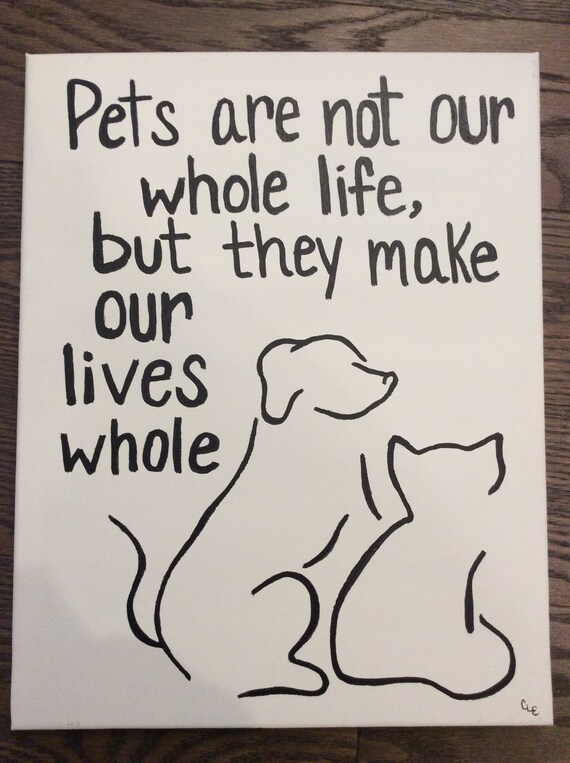 Pets are not our
whole life,
but they make
our
lives
whole
CLE